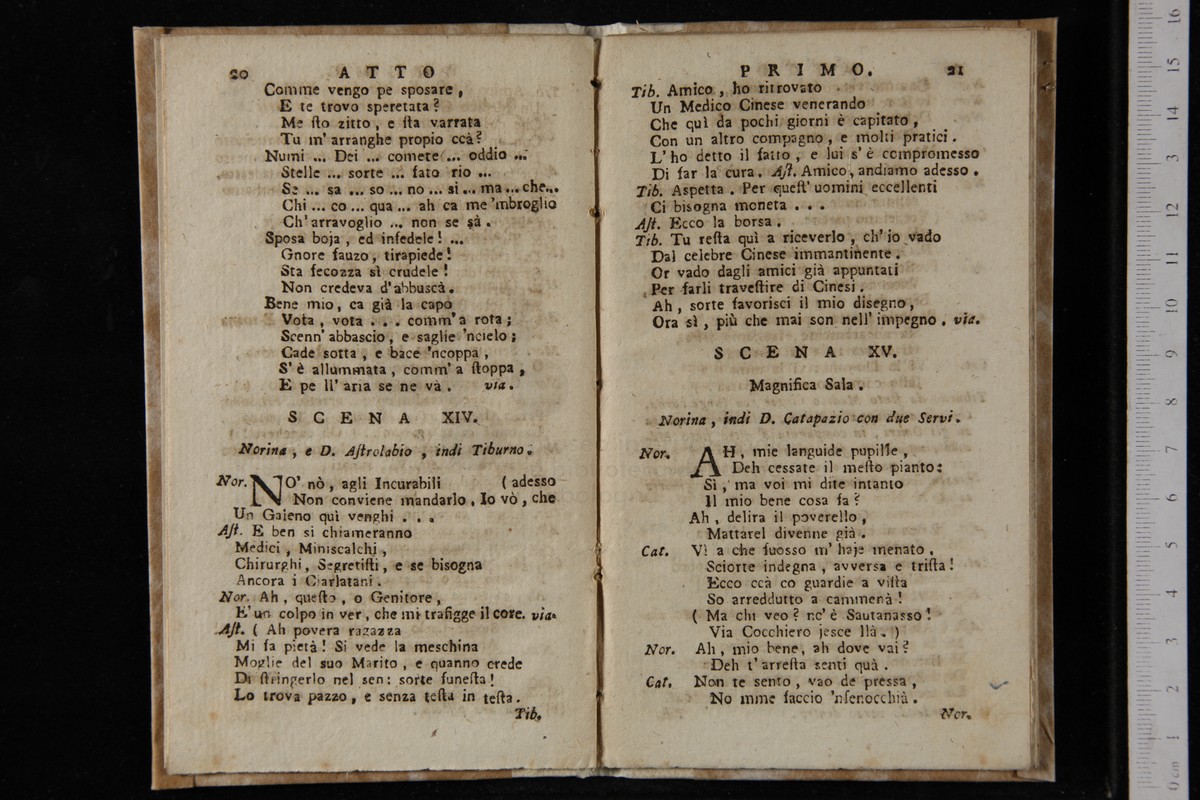 20 ATTO
Comme vengo pe sposare,
E te trovo speretata?
Me ſto zitto, e ſta varrata
Tu m' arranghe propio ccà?
Numi ... Dei ... comete ... oddio ...
Stelle ... sorte ... fato rio ...
Se ... sa ... so ... no ... si ... ma ... che...
Chi ... co ... qua ... ah ca me 'mbroglio
Ch' arravoglio ... non se sà.
Sposa boja, ed infedele! ...
Gnore fauzo, tirapiede!
Sta fecozza sì crudele!
Non credeva d'abbuscà.
Bene mio, ca già la capo
Vota, vota . . . comm' a rota;
Scenn' abbascio, e saglie 'ncielo;
Cade sotta, e bace 'ncoppa,
S' è allummata, comm' a ſtoppa,
E pe ll' aria se ne và. via.
SCENA XIV.
Norina, e D. Aſtrolabio, indi Tiburno.
Nor. NO' nò, agli Incurabili ( adesso
Non conviene mandarlo, Io vò, che
Un Galeno quì venghi . . .
Aſt. E ben si chiameranno
Medici, Miniscalchi,
Chirurghi, Segretiſti, e se bisogna
Ancora i Ciarlatani.
Nor. Ah, queſto, o Genitore,
E' un colpo in ver, che mi trafigge il core. via.
Aſt. ( Ah povera razazza
Mi fa pietà! Si vede la meschina
Moglie del suo Marito, e quanno crede
Di ſtringerlo nel sen: sorte funeſta!
Lo trova pazzo, e senza teſta in teſta.
Tib.
PRIMO. 21
Tib. Amico, ho ritrovato
Un Medico Cinese venerando
Che quì da pochi giorni è capitato,
Con un altro compagno, e molti pratici.
L' ho detto il fatto, e lui s' è compromesso
Di far la cura. Aſt. Amico, andiamo adesso.
Tib. Aspetta. Per queſt' uomini eccellenti
Ci bisogna moneta . . .
Aſt. Ecco la borsa.
Tib. Tu reſta quì a riceverlo, ch' io vado
Dal celebre Cinese immantinente.
Or vado dagli amici già appuntati
Per farli traveſtire di Cinesi.
Ah, sorte favorisci il mio disegno,
Ora sì, più che mai son nell' impegno. via.
SCENA XV.
Magnifica Sala.
Norina, indi D. Catapazio con due Servi.
Nor. AH, mie languide pupille,
Deh cessate il meſto pianto:
Sì, ma voi mi dite intanto
Il mio bene cosa fa?
Ah, delira il poverello,
Mattarel divenne già.
Cat. Vì a che fuosso m' haje menato,
Sciorte indegna, avversa e triſta!
Ecco ccà co guardie a viſta
So arreddutto a cammenà!
( Ma chi veo? nc' è Sautanasso!
Via Cocchiero jesce llà. )
Nor. Ah, mio bene, ah dove vai?
Deh t' arreſta senti quà.
Cat. Non te sento, vao de pressa,
No mme faccio 'nfenocchià.
Nor.